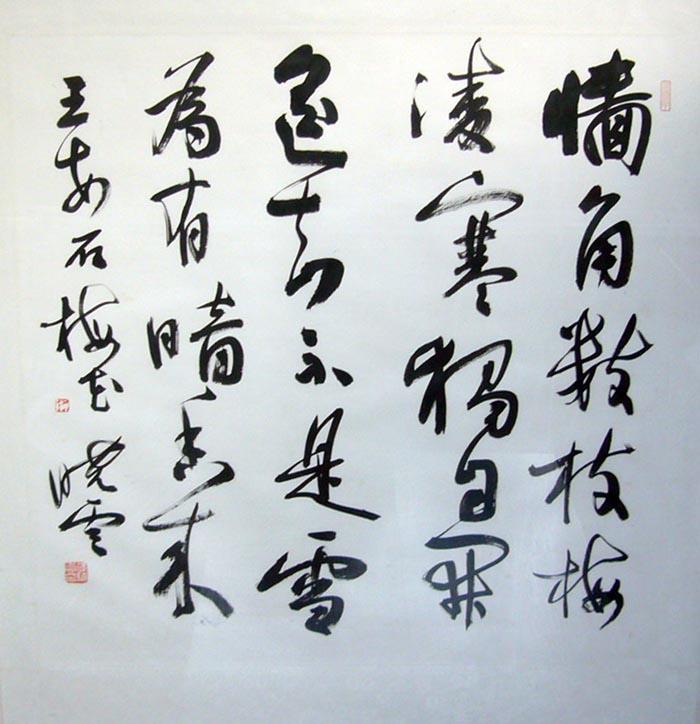 墙角数枝梅
凌寒独自開
遥知不是雪
為有暗香来
王安石梅花 晓云